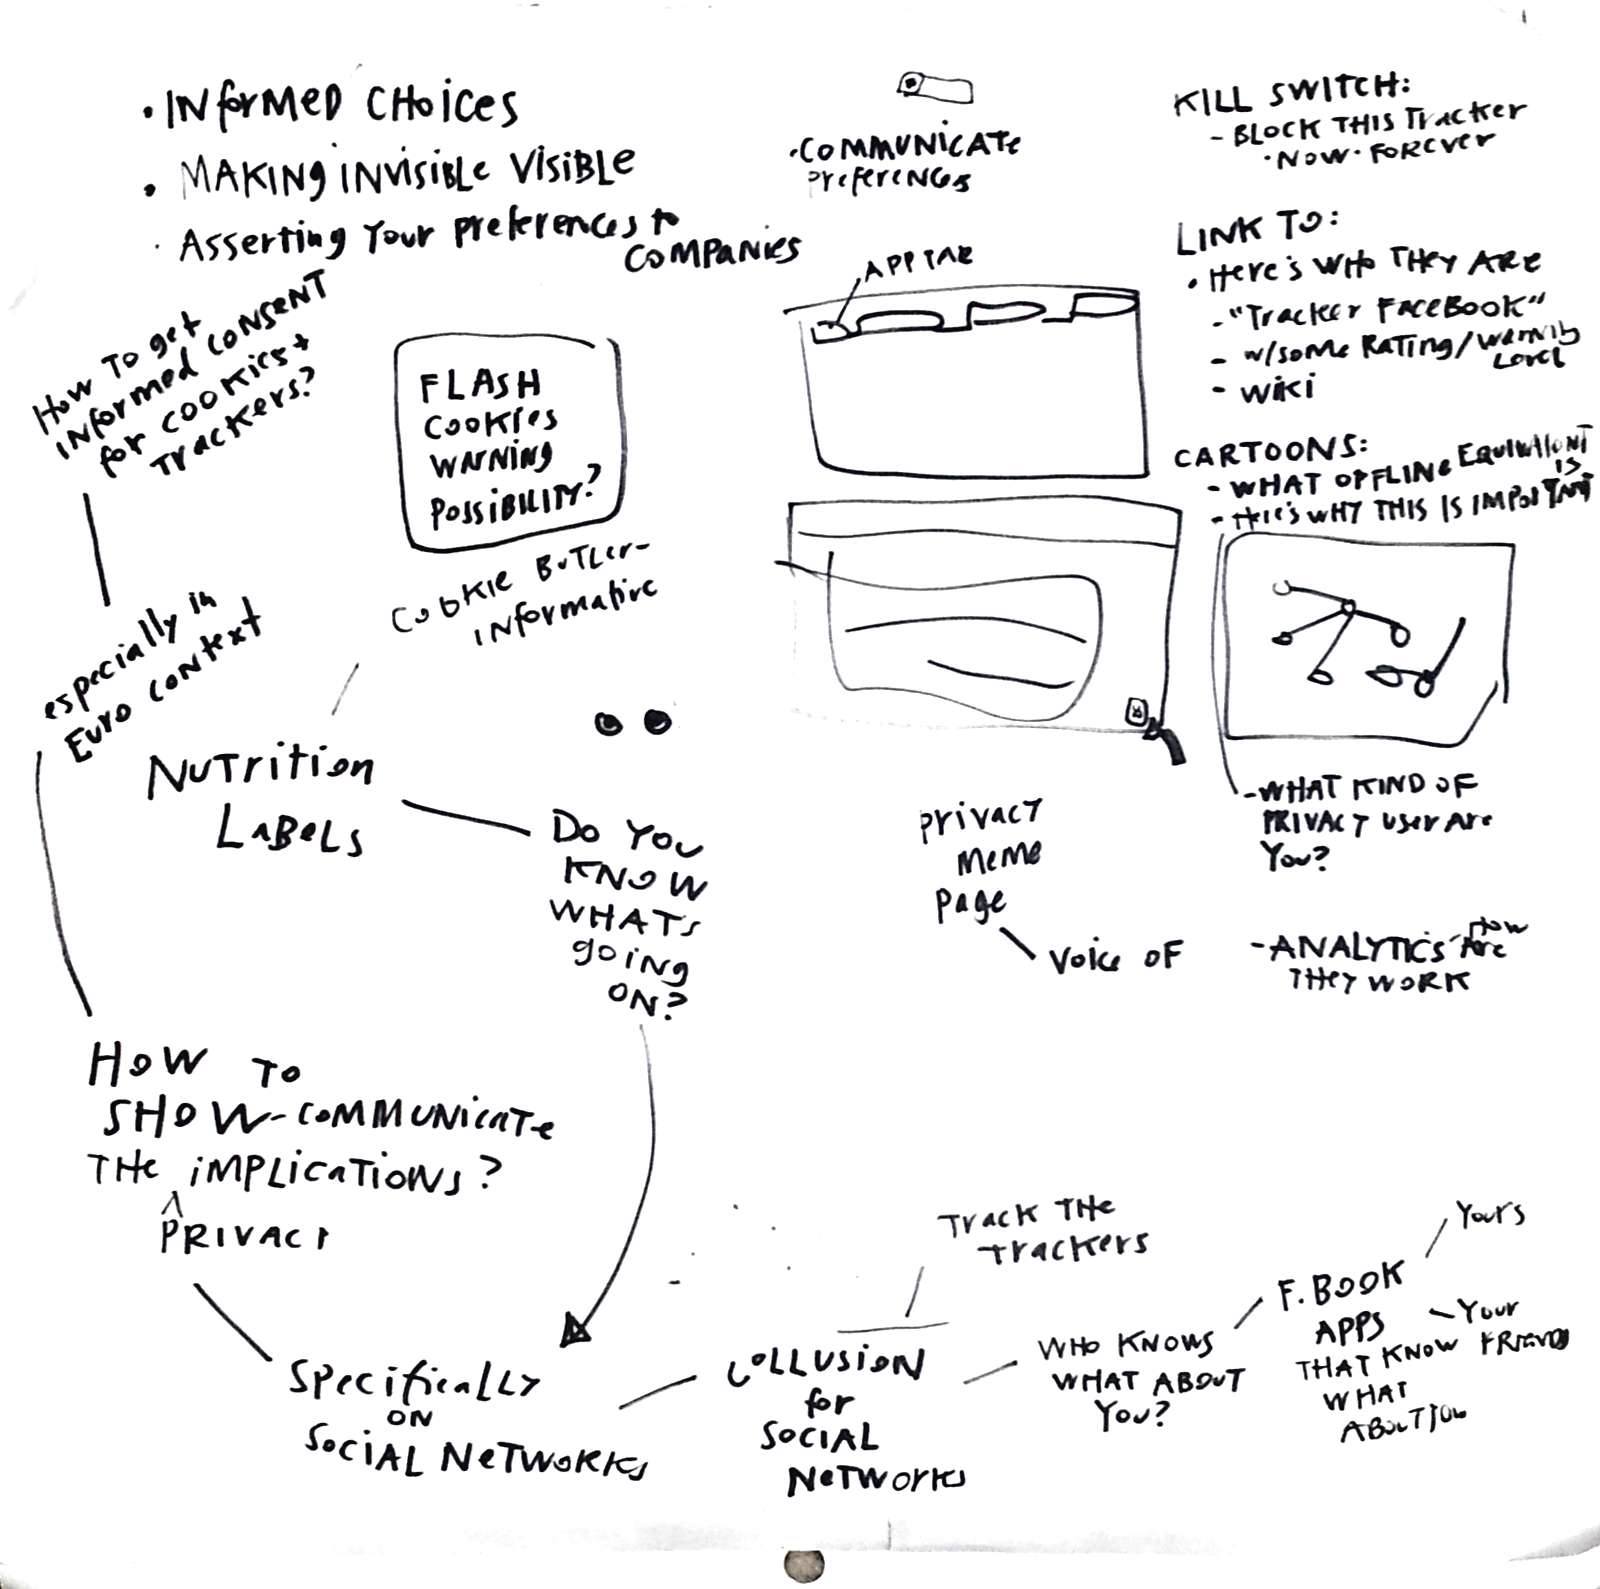 • INFORMED CHOICES
• MAKING INVISIBLE VISIBLE
• Asserting Your preferences to
COMPANIES
How To get
INformed CONSENT
for COOKIES +
TrACKERS?
especially in
Euro CONTEXT
FLASH
COOKIES
WARNING
POSSIBILITY?
COOKIE BUTLER-
INformative
NUTrition
LABELS
DO YOU
KNOW
WHAT'S
going
ON?
HOW TO
SHOW-COMMUNICATE
THE IMPLICATIONS?
^
PRIVACY
Specifically
ON
SOCIAL NETWORKS
• COMMUNICATE
preferences
APP TAB
privacy
MEME
page
VOICE OF
KILL SWITCH:
- BLOCK THIS TrACKER
• NOW • FOREVER
LINK TO:
• HERE'S WHO THEY ARE
- "Tracker FACEBOOK"
- W/SOME RATING/WARNING
LEVEL
- WIKI
CARTOONS:
- WHAT OFFLINE EQUIVALENT
IS
- HERE'S WHY THIS IS IMPORTANT
- WHAT KIND OF
PRIVACY USER ARE
YOU?
- ANALYTICS - HOW
ARE
THEY WORK
TRACK THE
TRACKERS
COLLUSION
for
SOCIAL
NETWORKS
WHO KNOWS
WHAT ABOUT
YOU?
F. BOOK
APPS
THAT KNOW
WHAT
ABOUT YOU
Yours
Your
FRIENDS